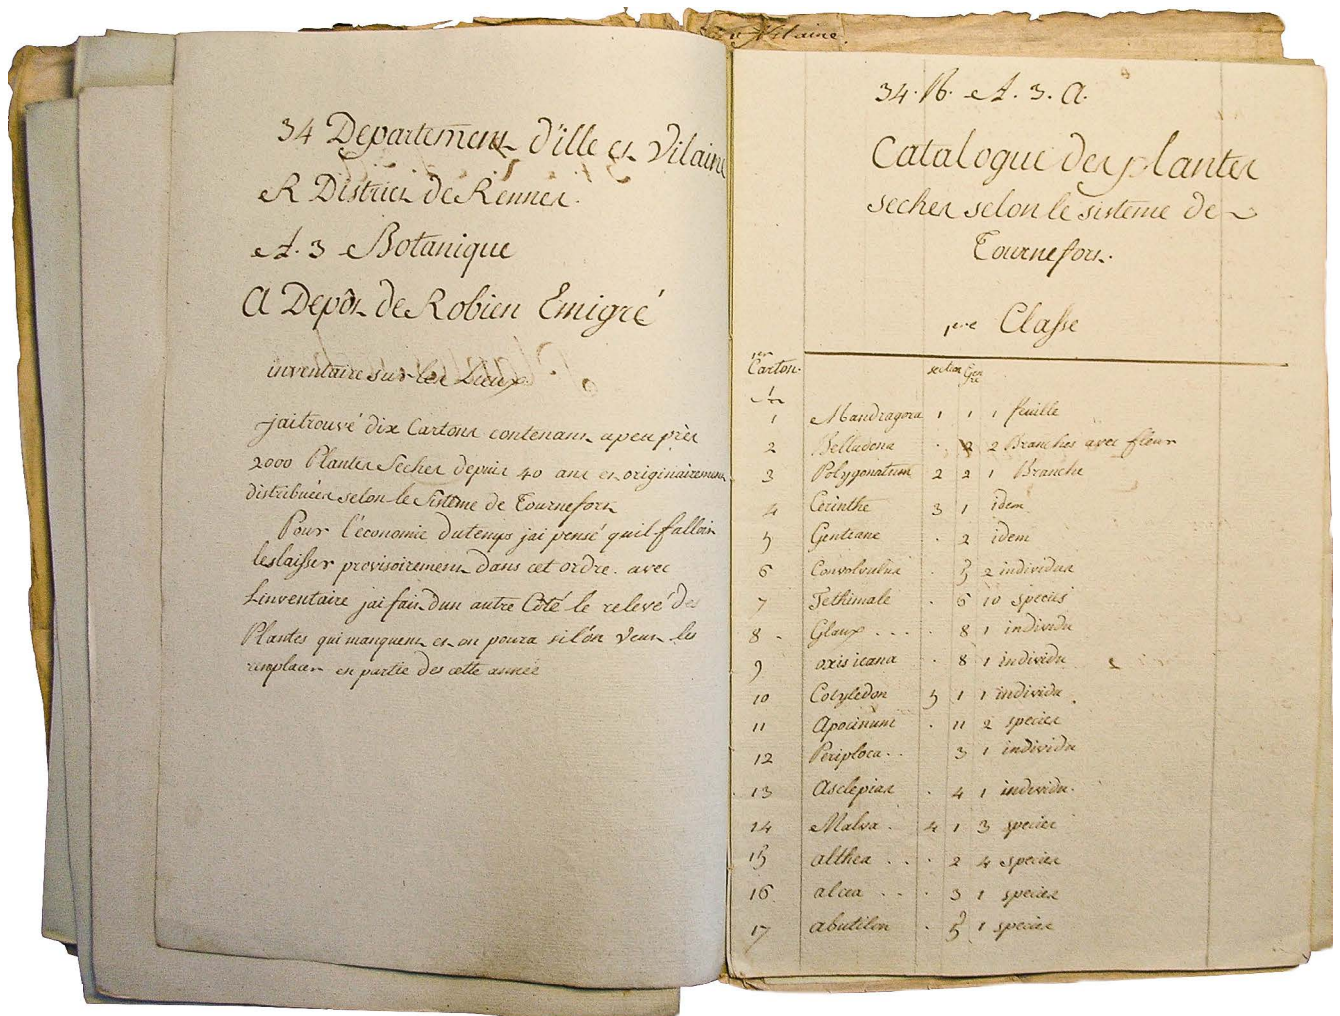 Vilaine.
34 Departement d'ille et Vilaine
R District de Rennes.
A. 3 Botanique
A Depôt de Robien Emigré
inventaire sur les Lieux.
jai trouvé dix Cartons contenant apeu près
2000 Plantes Seches depuis 40 ans et originairement
distribuées selon le Sisteme de Tournefort
Pour l'économie du temps jai pensé quil falloit
les laisser provisoirement dans cet ordre. avec
Linventaire jai fait dun autre Côté le relevé des
Plantes qui manquent et on poura si lón veut les
remplacer en partie des cette année
34. R. A. 3. A.
Catalogue des plantes
seches selon le sisteme de
Tournefort.
1ere Classe
1er Carton. section Genre
1 Mandragora 1 1 1 feuille
2 Belladona . 2 2 Branches avec fleur
3 Polygonatum 2 2 1 Branche
4 Cerinthe 3 1 idem
5 Gentiane . 2 idem
6 Convolvulus . 3 2 individus
7 Tethimale . 6 10 species
8 - Glaux . . . . 8 1 individu
9 oxis icana . 8 1 individu
10 Cotyledon 5 1 1 individu
11 Apocinum . 11 2 species
12 Periploca . . 3 1 individu
13 Asclepias . 4 1 individu.
14 Malva . 4 1 3 species
15 althea . . . 2 4 species
16 alcea . . . 3 1 species
17 abutilon . 5 1 species